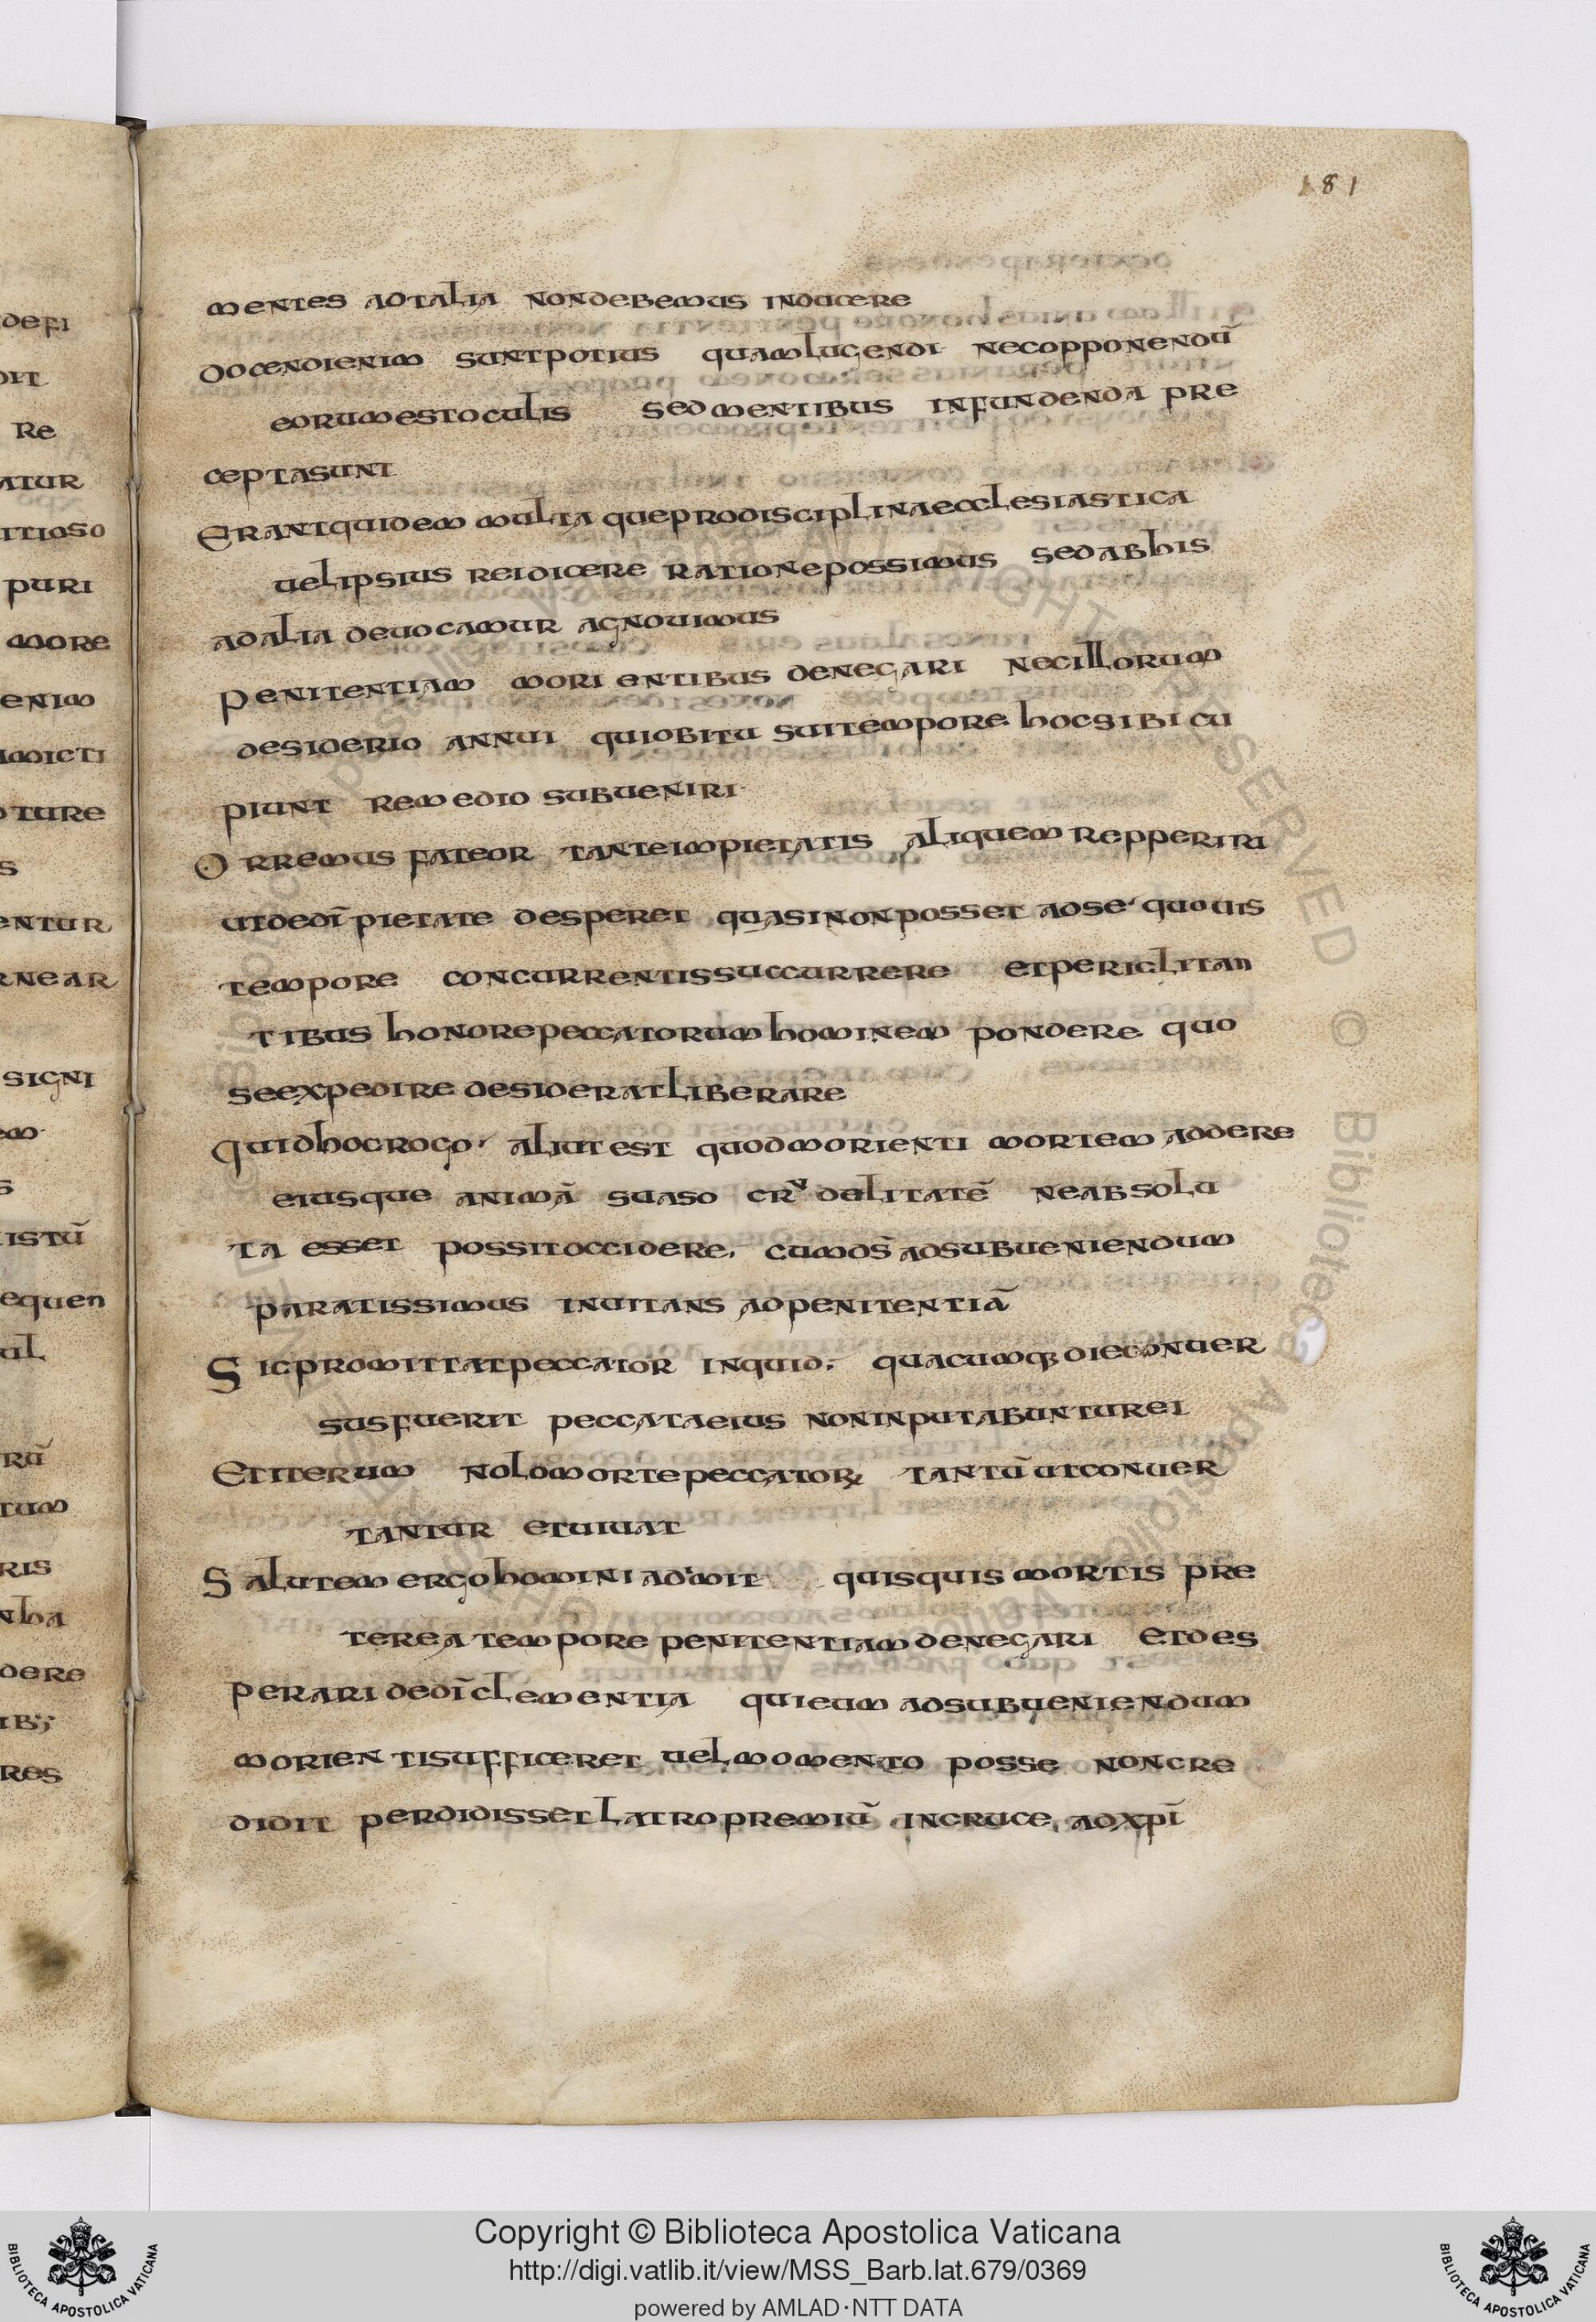 181
mentes ad talia non debemus inducere
docendi enim sunt potius quam lugendi nec opponendū
eorum est oculis sed mentibus infundenda pre
cepta sunt
Erant quidem multa que pro disciplina ecclesiastica
uel ipsius rei dicere ratione possimus sed ab his
ad alia deuocamur agnouimus
penitentiam morientibus denegari nec illorum
desiderio annui qui obitu sui tempore hoc sibi cu
piunt remedio subueniri
Orremus fateor tante impietatis aliquem repperiri
ut de dī pietate desperet quasi non posset ad se quouis
tempore concurrentis succurrere et periclitan
tibus honore peccatorum hominem pondere quo
se expedire desiderat liberare
Quid hoc rogo aliut est quod morienti mortem addere
eiusque animā sua so crudelitatē ne absolu
ta esset possit occidere. cum ds̄ ad subueniendum
paratissimus inuitans ad penitentiā
Sic promittat peccator inquid. quacumq; die conuer
sus fuerit peccata eius non inputabuntur ei
Et iterum nolo morte peccator tantū ut conuer
tantur et uiuat
Salutem ergo homini ademit quisquis mortis pre
terea tempore penitentiam denegari et des
perari de dī clementia qui eum ad subueniendum
morienti sufficeret uel momento posse non cre
didit perdidisset latro premiū in cruce ad xpī
defi
dit
re
atur
itioso
puri
more
enim
micti
ture
s
entur
rnear
signi
em
s
istū
equen
ul
rū
tum
ris
nha
dere
ib;
res
Copyright © Biblioteca Apostolica Vaticana
http://digi.vatlib.it/view/MSS_Barb.lat.679/0369
powered by AMLAD·NTT DATA
BIBLIOTECA APOSTOLICA VATICANA
BIBLIOTECA APOSTOLICA VATICANA